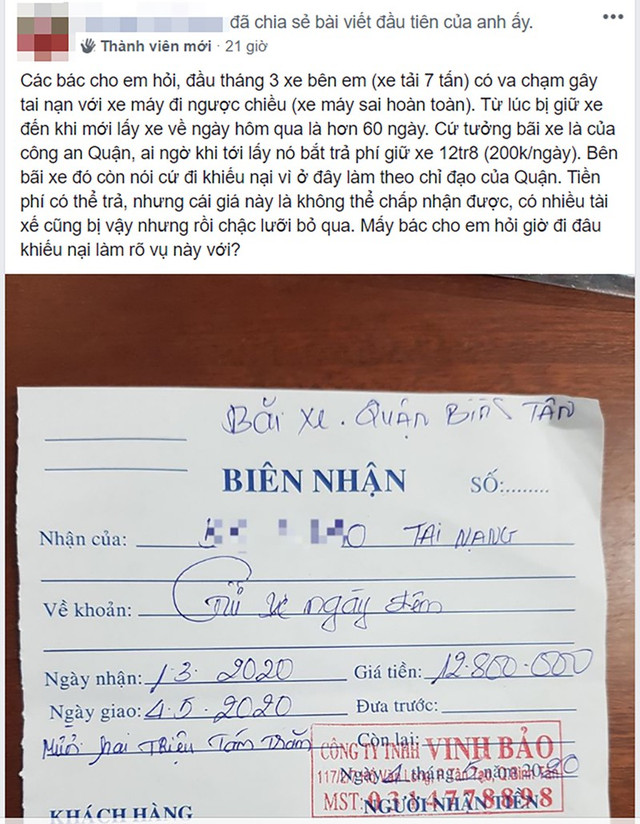 đã chia sẻ bài viết đầu tiên của anh ấy.
Thành viên mới · 21 giờ
Các bác cho em hỏi, đầu tháng 3 xe bên em (xe tải 7 tấn) có va chạm gây
tai nạn với xe máy đi ngược chiều (xe máy sai hoàn toàn). Từ lúc bị giữ xe
đến khi mới lấy xe về ngày hôm qua là hơn 60 ngày. Cứ tưởng bãi xe là của
công an Quận, ai ngờ khi tới lấy nó bắt trả phí giữ xe 12tr8 (200k/ngày). Bên
bãi xe đó còn nói cứ đi khiếu nại vi ở đây làm theo chỉ đạo của Quận. Tiền
phí có thể trả, nhưng cái giá này là không thể chấp nhận được, có nhiều tài
xế cũng bị vậy nhưng rồi chậc lưỡi bỏ qua. Mấy bác cho em hỏi giờ đi đâu
khiếu nại làm rõ vụ này với?
Bãi xe. QUẬN BìNh TÂN
BIÊN NHẬN SỐ:........
Nhận của: TAI NẠNG
Về khoản: Giữ xe ngày đêm
Ngày nhận: 1·3·2020 Giá tiền: 12·800·000
Ngày giao: 4·5·2020 Đưa trước:
Mười hai Triệu Tám Trăm Còn lại:
CÔNG TY TNHH VINH BẢO
Ngày 4 tháng 5 năm 2020
MST: 0314778898
KHÁCH HÀNG NGƯỜI NHẬN TIỀN